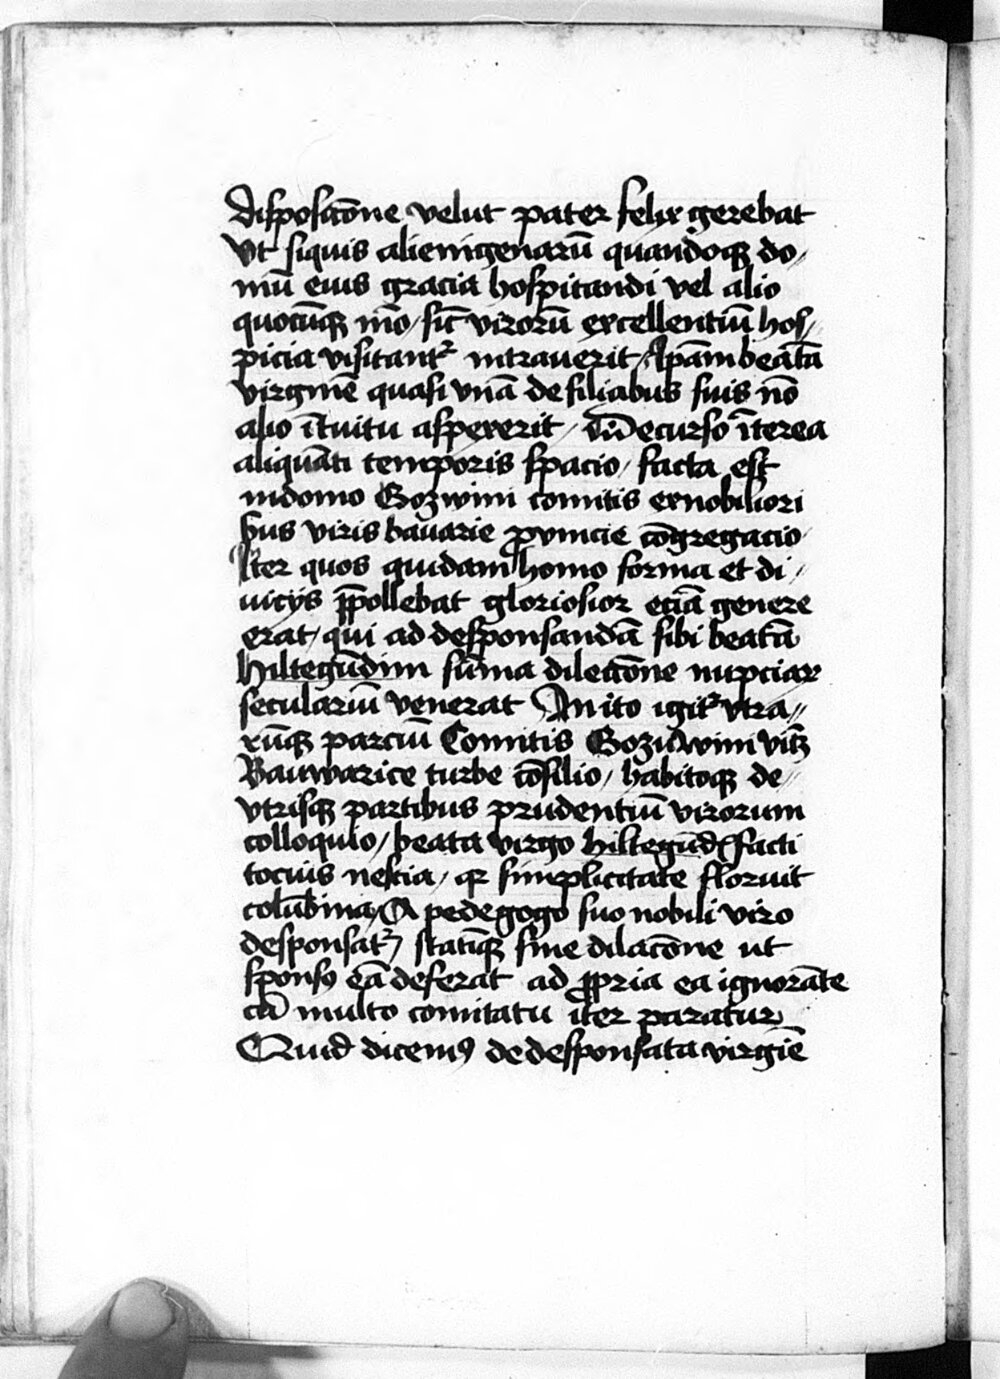 disposicōne velut pater felix gerebat
Vt siquis alienigenarū quandoqꝫ do⸗
mū eius gracia hospitandi vel alio
quocūqꝫ mō / sic̄ virorū excellentiū hos⸗
picia visitant᷑ intrauerit / Ipām beātā
virginē quasi vnā de filiabus suis nō
alio ītuitu aspexerit / Cū decurso īterea
aliquāti temporis spacio / facta est
in domo Gozwini comitis ex nobiliori
bus viris bauarie ꝓuincie cōgregacio
Iter quos quidam homo forma et di /
uicijs p̄pollebat gloriosior eciā genere
erat / qui ad desponsandā sibi beatā
Hiltegūdim sūma dilectōne nupciar
seculariū venerat Inito igit᷑ vtra⸗
rūqꝫ parciū Comitis Gozuwini vitꝫ
Bauwarice turbe cōsilio / habitoqꝫ de⸗
vtrisqꝫ partibus prudentiū virorum
colloquio / beata virgo hiltegūd facti
tocius nescia / qꝛ simplicitate floruit
colūbina / A pedegogo suo nobili viro
desponsat᷑ / statīqꝫ sine dilacōne ut
sponsꝰ eā deferat ad ꝓpria ea ignorāte
cū multo comitatu iter paratur
Quid dicemꝰ de desponsata virgīe